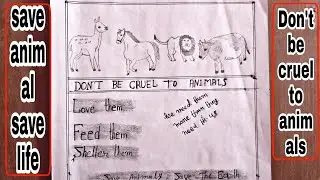 save
anim
al
save
life
DON'T BE CRUEL TO ANIMALS
Love them
Feed them
Shelter them
we need them
more than they
need to us
Save Animals & Save The Earth
Don't
be
cruel
to
anim
als